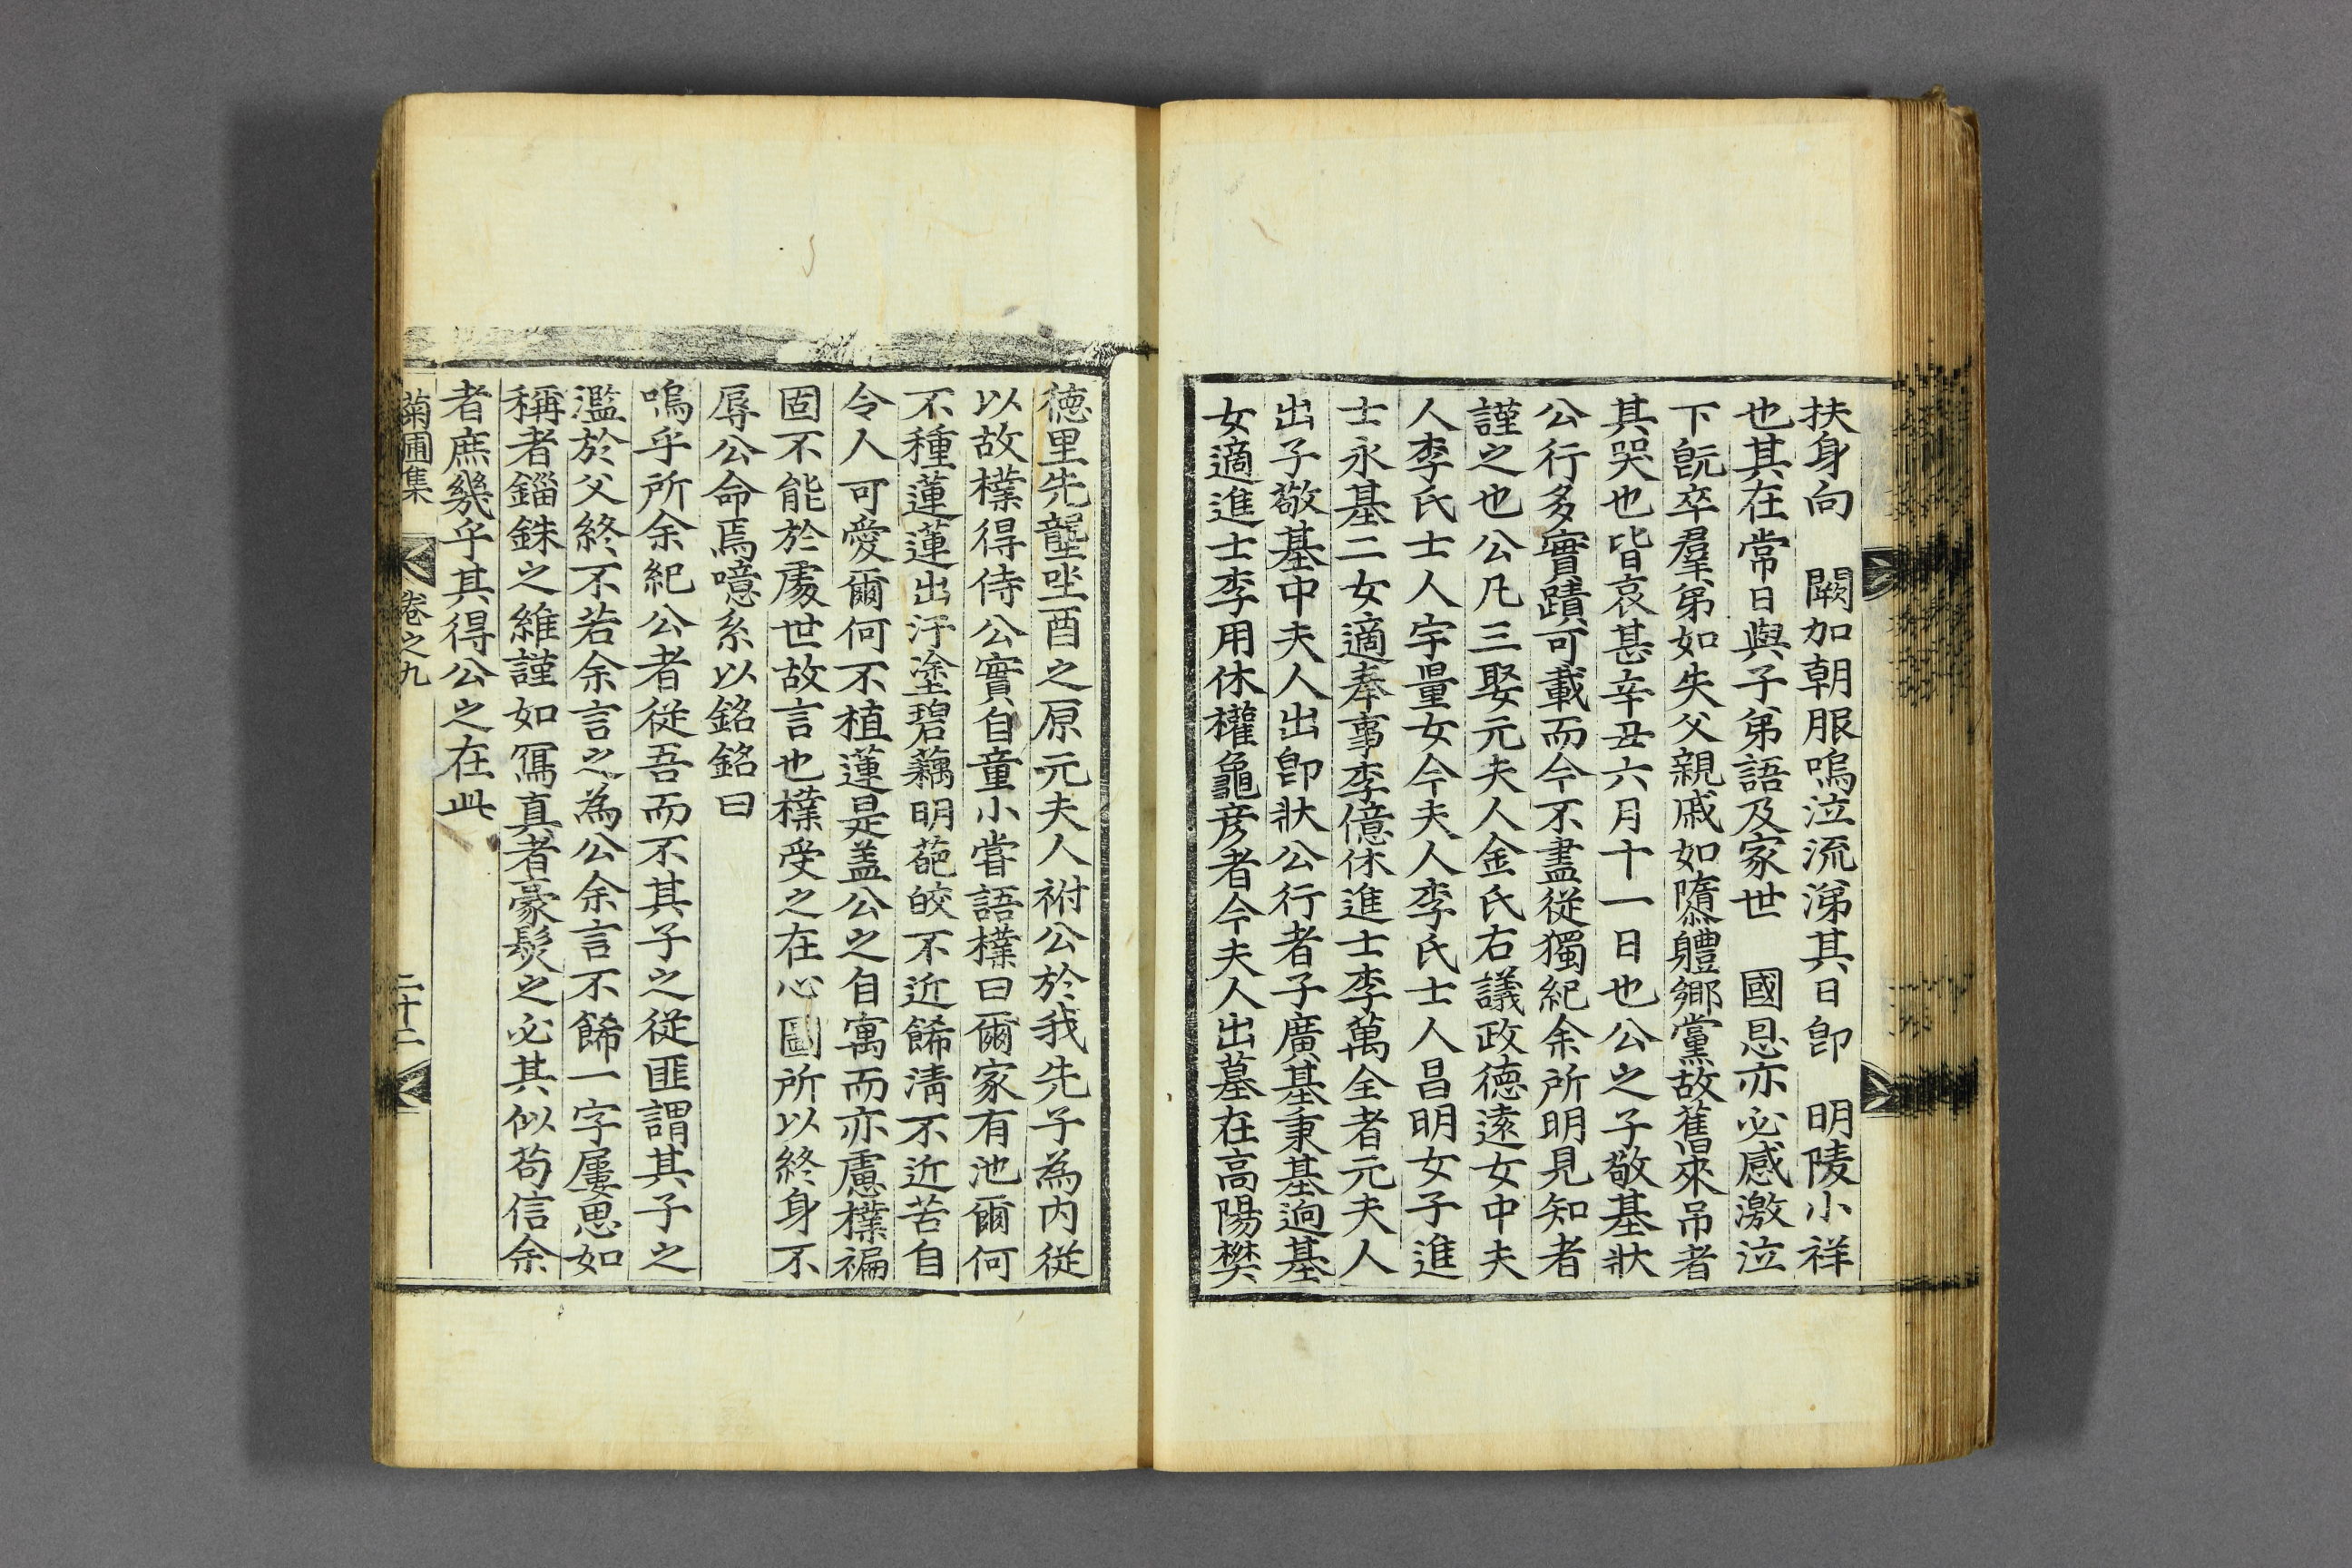 扶身向　闕加朝服嗚泣流涕其日卽　明陵小祥
也其在常日與子弟語及家世　國恩亦必感激泣
下旣卒羣弟如失父親戚如隳軆鄉黨故舊來吊者
其哭也皆哀甚辛丑六月十一日也公之子敬基狀
公行多實蹟可載而今不盡從獨紀余所明見知者
謹之也公凡三娶元夫人金氏右議政德遠女中夫
人李氏士人宇量女今夫人李氏士人昌明女子進
士永基二女適奉事李億休進士李萬全者元夫人
出子敬基中夫人出卽狀公行者子廣基秉基逈基
女適進士李用休權龜彦者今夫人出墓在高陽樊
德里先壟坐酉之原元夫人祔公於我先子為內從
以故檏得侍公實自童小嘗語檏曰爾家有池爾何
不種蓮蓮出汙塗碧藕明葩皎不近餙淸不近苦自
令人可愛爾何不植蓮是盖公之自寓而亦慮檏褊
固不能於處世故言也檏受之在心圖所以終身不
辱公命焉噫系以銘銘曰
嗚乎所余紀公者從吾而不其子之從匪謂其子之
濫於父終不若余言之為公余言不餙一字屢思如
稱者錙銖之維謹如寫真者豪髮之必其似苟信余
者庶幾乎其得公之在此
菊圃集　卷之九　二十二